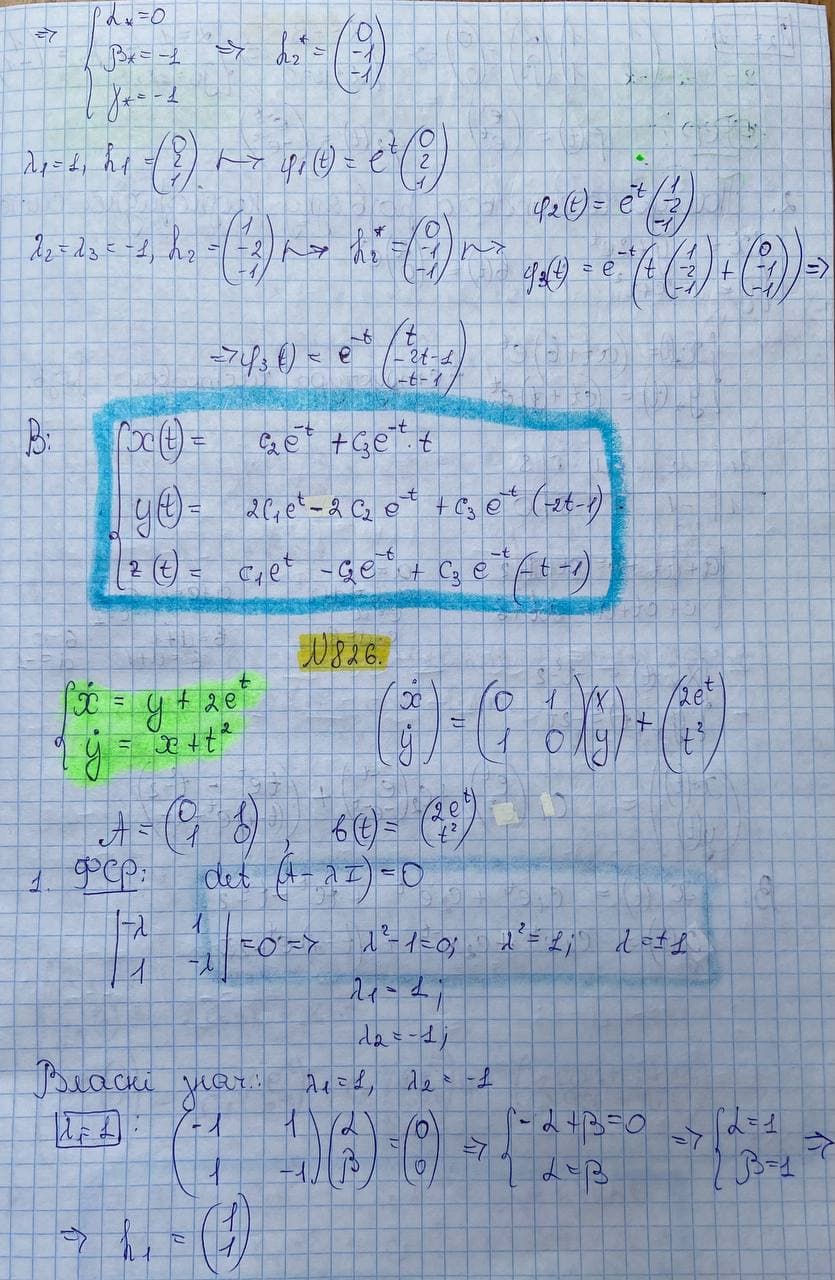 => { α* = 0
β* = -1 => h₂* = (0 -1 -1)
γ* = -1
λ₁ = 1, h₁ = (0 2 1) ↦ φ₁(t) = eᵗ (0 2 1)
φ₂(t) = e⁻ᵗ (1 -2 -1)
λ₂ = λ₃ = -1, h₂ = (1 -2 -1) ↦ h₂* = (0 -1 -1) ↦
φ₃(t) = e⁻ᵗ (t (1 -2 -1) + (0 -1 -1)) =>
=> φ₃(t) = e⁻ᵗ (t -2t-1 -t-1)
В: { x(t) = c₂e⁻ᵗ + c₃e⁻ᵗ · t
y(t) = 2c₁eᵗ - 2c₂e⁻ᵗ + c₃e⁻ᵗ (-2t-1)
z(t) = c₁eᵗ - c₂e⁻ᵗ + c₃e⁻ᵗ (-t-1)
N826.
{ ẋ = y + 2eᵗ
ẏ = x + t²
(ẋ ẏ) = (0 1 1 0)(x y) + (2eᵗ t²)
A = (0 1 1 0), b(t) = (2eᵗ t²)
1. ФСР: det (A - λI) = 0
|-λ 1 1 -λ| = 0 => λ² - 1 = 0; λ² = 1; λ = ±1
λ₁ = 1;
λ₂ = -1;
Власні знач.: λ₁ = 1, λ₂ = -1
λ₁ = 1 : (-1 1 1 -1)(α β) = (0 0) => { -α + β = 0 α = β => { α = 1 β = 1 =>
=> h₁ = (1 1)